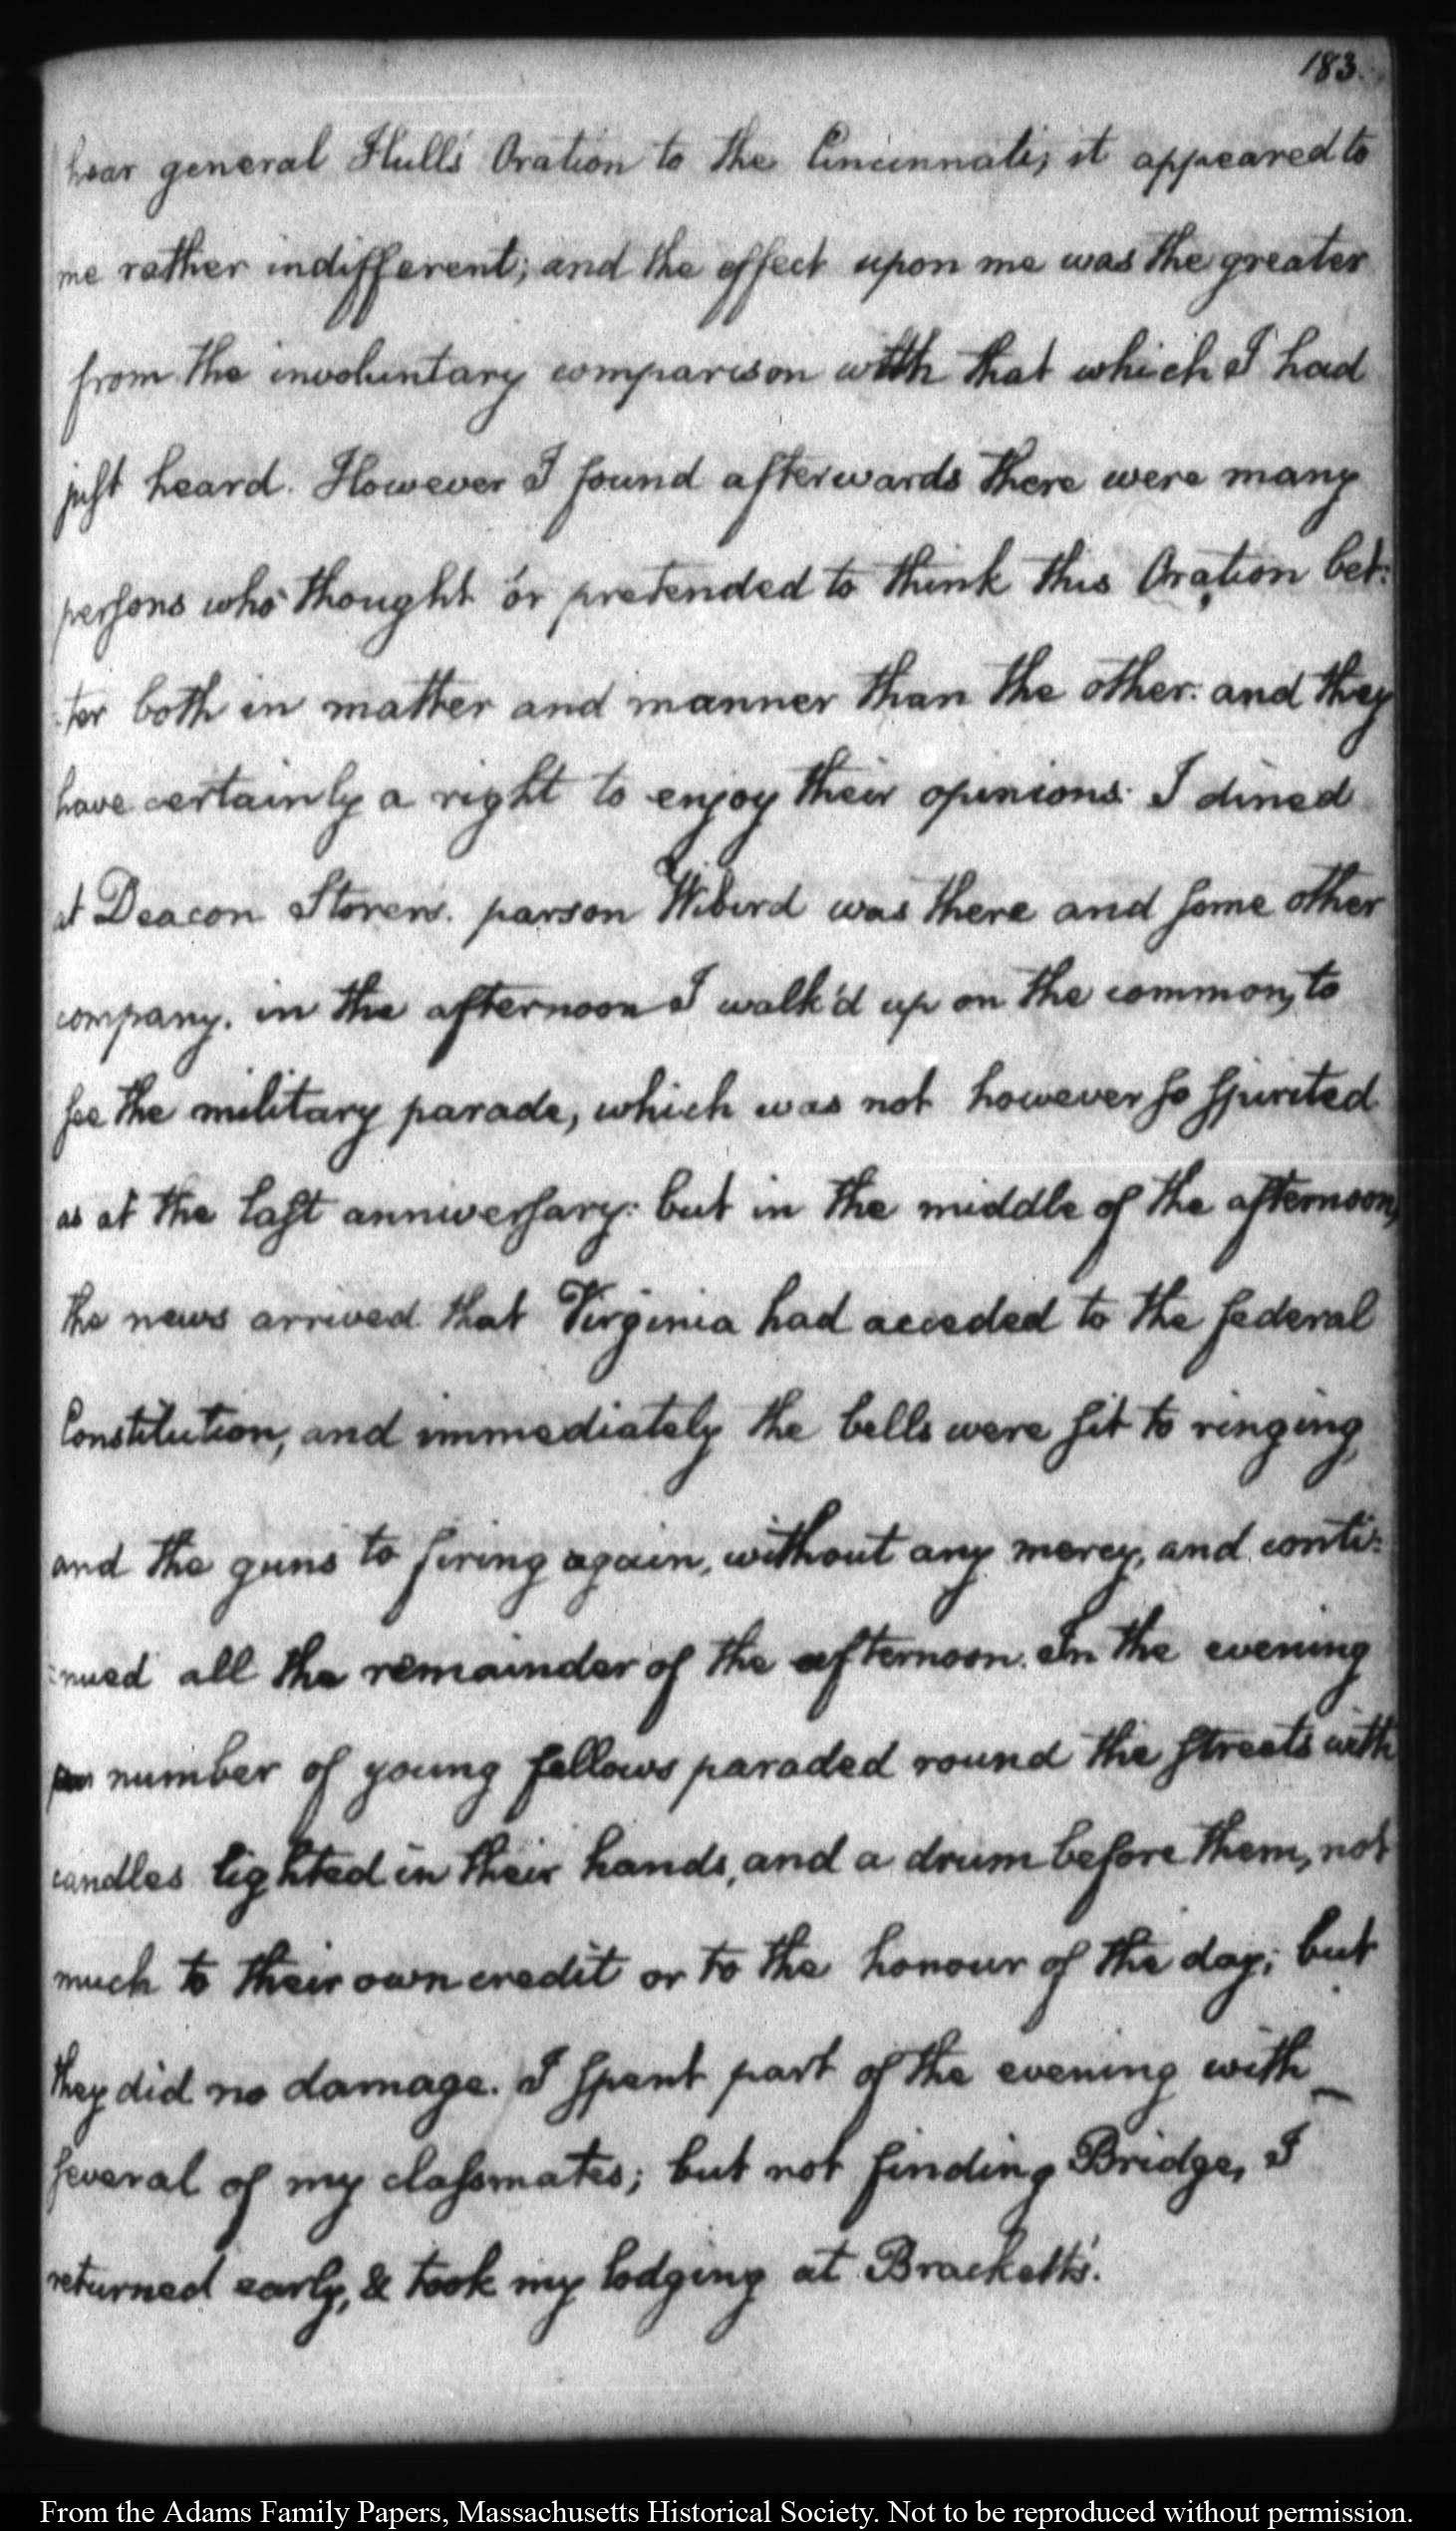 183.
hear general Hull's Oration to the Cincinnati; it appeared to
me rather indifferent; and the effect upon me was the greater
from the involuntary comparison with that which I had
just heard. However I found afterwards there were many
persons who thought or pretended to think this Oration bet:
:ter both in matter and manner than the other: and they
have certainly a right to enjoy their opinions. I dined
at Deacon Storer's. parson Wibird was there and some other
company. in the afternoon I walk'd up on the common, to
see the military parade, which was not however so spirited
as at the last anniversary: but in the middle of the afternoon,
the news arrived that Virginia had acceded to the federal
Constitution, and immediately the bells were sit to ringing,
and the guns to firing again, without any mercy, and conti:
:nued all the remainder of the afternoon. In the evening
number of young fellows paraded round the streets with
candles lighted in their hands, and a drum before them, not
much to their own credit or to the honour of the day; but
they did no damage. I spent part of the evening with
several of my classmates; but not finding Bridge, I
returned early, & took my lodging at Brackett's.
From the Adams Family Papers, Massachusetts Historical Society. Not to be reproduced without permission.